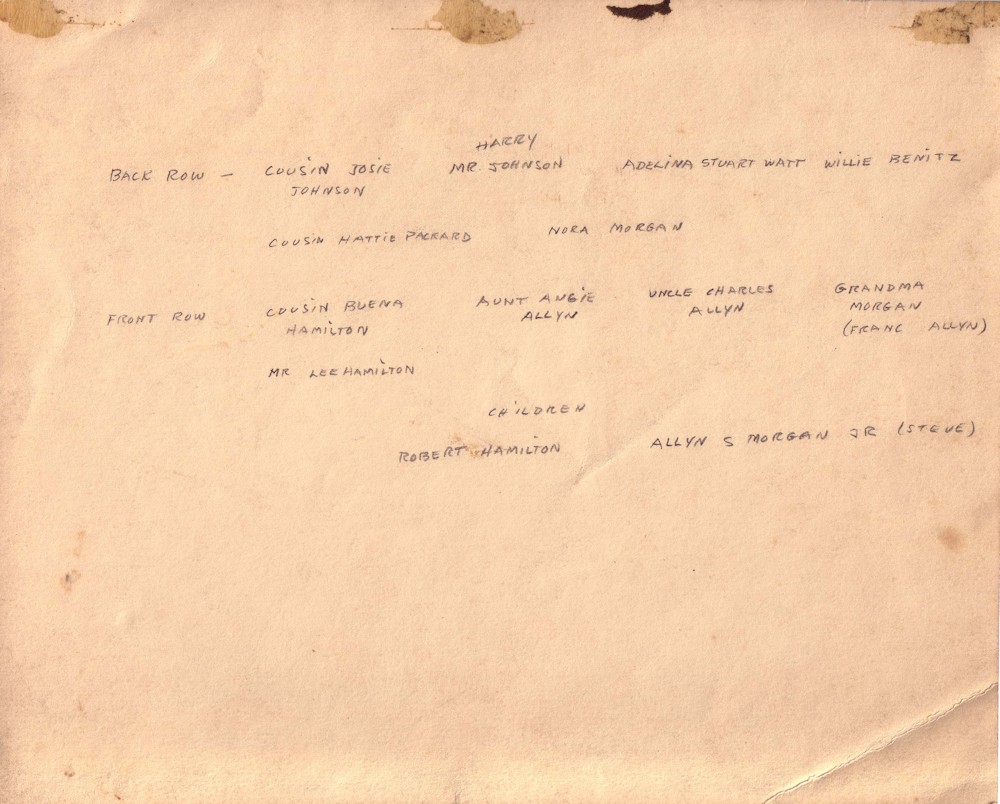 HARRY
BACK ROW – COUSIN JOSIE MR. JOHNSON ADELINA STUART WATT WILLIE BENITZ
JOHNSON
COUSIN HATTIE PACKARD NORA MORGAN
FRONT ROW COUSIN BUENA AUNT ANGIE UNCLE CHARLES GRANDMA
HAMILTON ALLYN ALLYN MORGAN
(FRANC ALLYN)
MR LEE HAMILTON
CHILDREN
ROBERT HAMILTON ALLYN S MORGAN JR (STEVE)